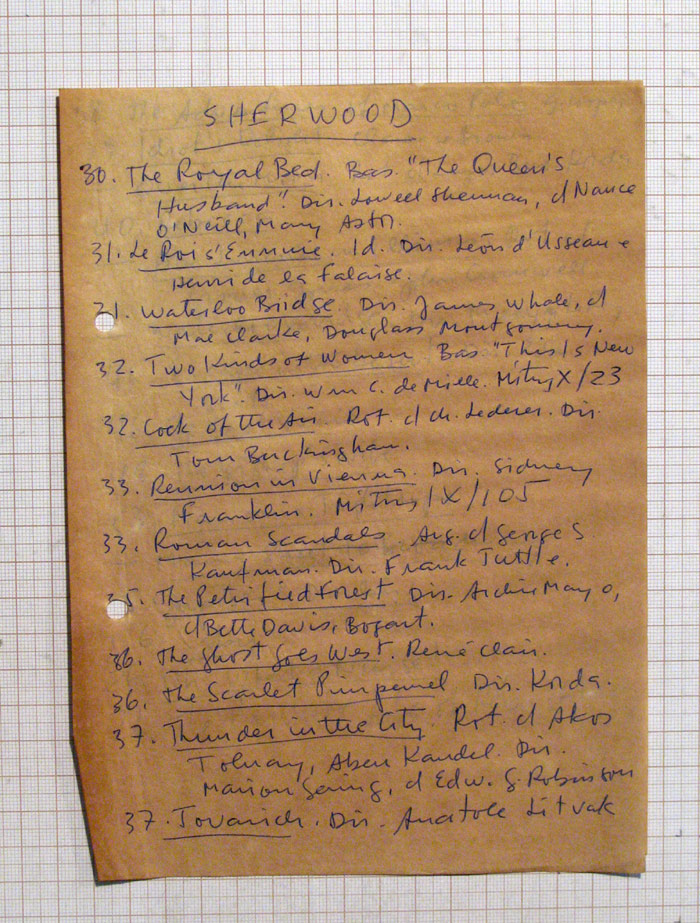 SHERWOOD
30. The Royal Bed. Bas. "The Queen's
Husband". Dir. Lowell Sherman, c/ Nance
O'Neill, Mary Astor.
31. Le Roi s'Ennuie. Id. Dir. León d'Usseau e
Henri de la Falaise.
31. Waterloo Bridge. Dir. James Whale, c/
Mae Clarke, Douglass Montgomery.
32. Two Kinds of Women. Bas "This Is New
York". Dir. Wm C. de Mille. Mitry X/23
32. Cock of the Air. Rot. c/ ch. Lederer. Dir.
Tom Buckingham.
33. Reunion in Vienna. Dir. Sidney
Franklin. Mitry IX/105
33. Roman Scandals. Arg. c/ George S.
Kaufman. Dir. Frank Tuttle.
35. The Petrified Forest Dir. Archie Mayo,
c/ Bette Davis, Bogart.
36. The Ghost Goes West. René Clair.
36. The Scarlet Pimpernel Dir. Korda.
37. Thunder in the City. Rot. c/ Akos
Tolnay, Aben Kandel. Dir.
Marion Gering, c/ Edw. G. Robinson
37. Tovarich. Dir. Anatole Litvak